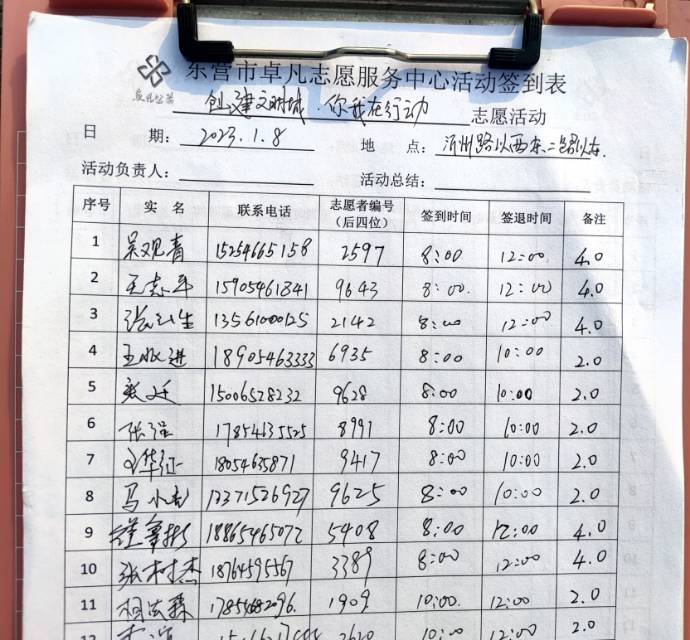 东营市卓凡志愿服务中心活动签到表
卓凡公益
创建文明城．你我在行动 志愿活动
日 期：2023.1.8 地 点：沂州路以西东二路以东.
活动负责人： 活动总结：
序号 实 名 联系电话 志愿者编号（后四位） 签到时间 签退时间 备注
1 吴观青 15254665158 2597 8:00 12:00 4.0
2 王志平 15905461841 9643 8:00. 12:00 4.0
3 13561000125 2142 8:00 12:00 4.0
4 王 进 18905463333 6935 8:00 10:00 2.0
5 15006528232 9628 8:00 10:00 2.0
6 张强 17854635525 8991 8:00 10:00 2.0
7 华征 18054635871 9417 8:00 10:00 2.0
8 马小 13371526927 9625 8:00 10:00 2.0
9 18865465072 5408 8:00 12:00 4.0
10 张树杰 18764595567 3389 8:00 12:00 4.0
11 相法森 17854682096. 1909 10:00. 12:00 2.0
12 2620 10:00 12:00 2.0